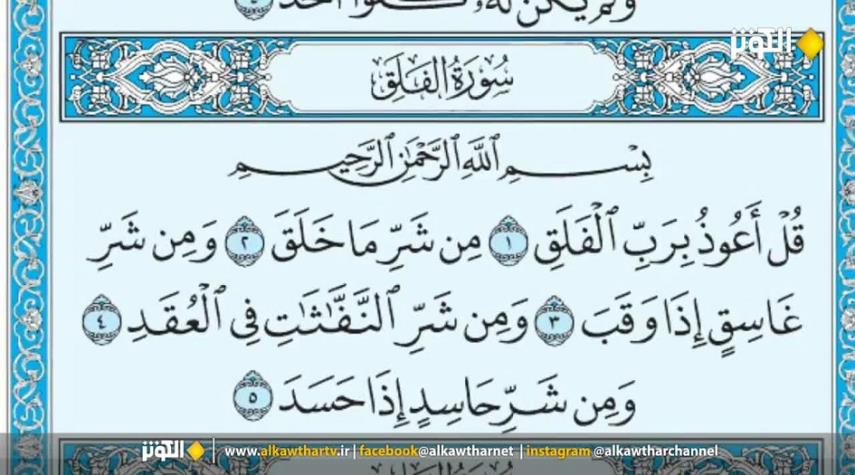 ولم يكن له كفوا أحد ٤
الكوثر
سُورَةُ الفَلَقِ
بِسْمِ ٱللَّهِ ٱلرَّحْمَٰنِ ٱلرَّحِيمِ
قُلْ أَعُوذُ بِرَبِّ ٱلْفَلَقِ ١ مِن شَرِّ مَا خَلَقَ ٢ وَمِن شَرِّ
غَاسِقٍ إِذَا وَقَبَ ٣ وَمِن شَرِّ ٱلنَّفَّٰثَٰتِ فِى ٱلْعُقَدِ ٤
وَمِن شَرِّ حَاسِدٍ إِذَا حَسَدَ ٥
الكوثر | www.alkawthartv.ir | facebook@alkawtharnet | instagram @alkawtharchannel